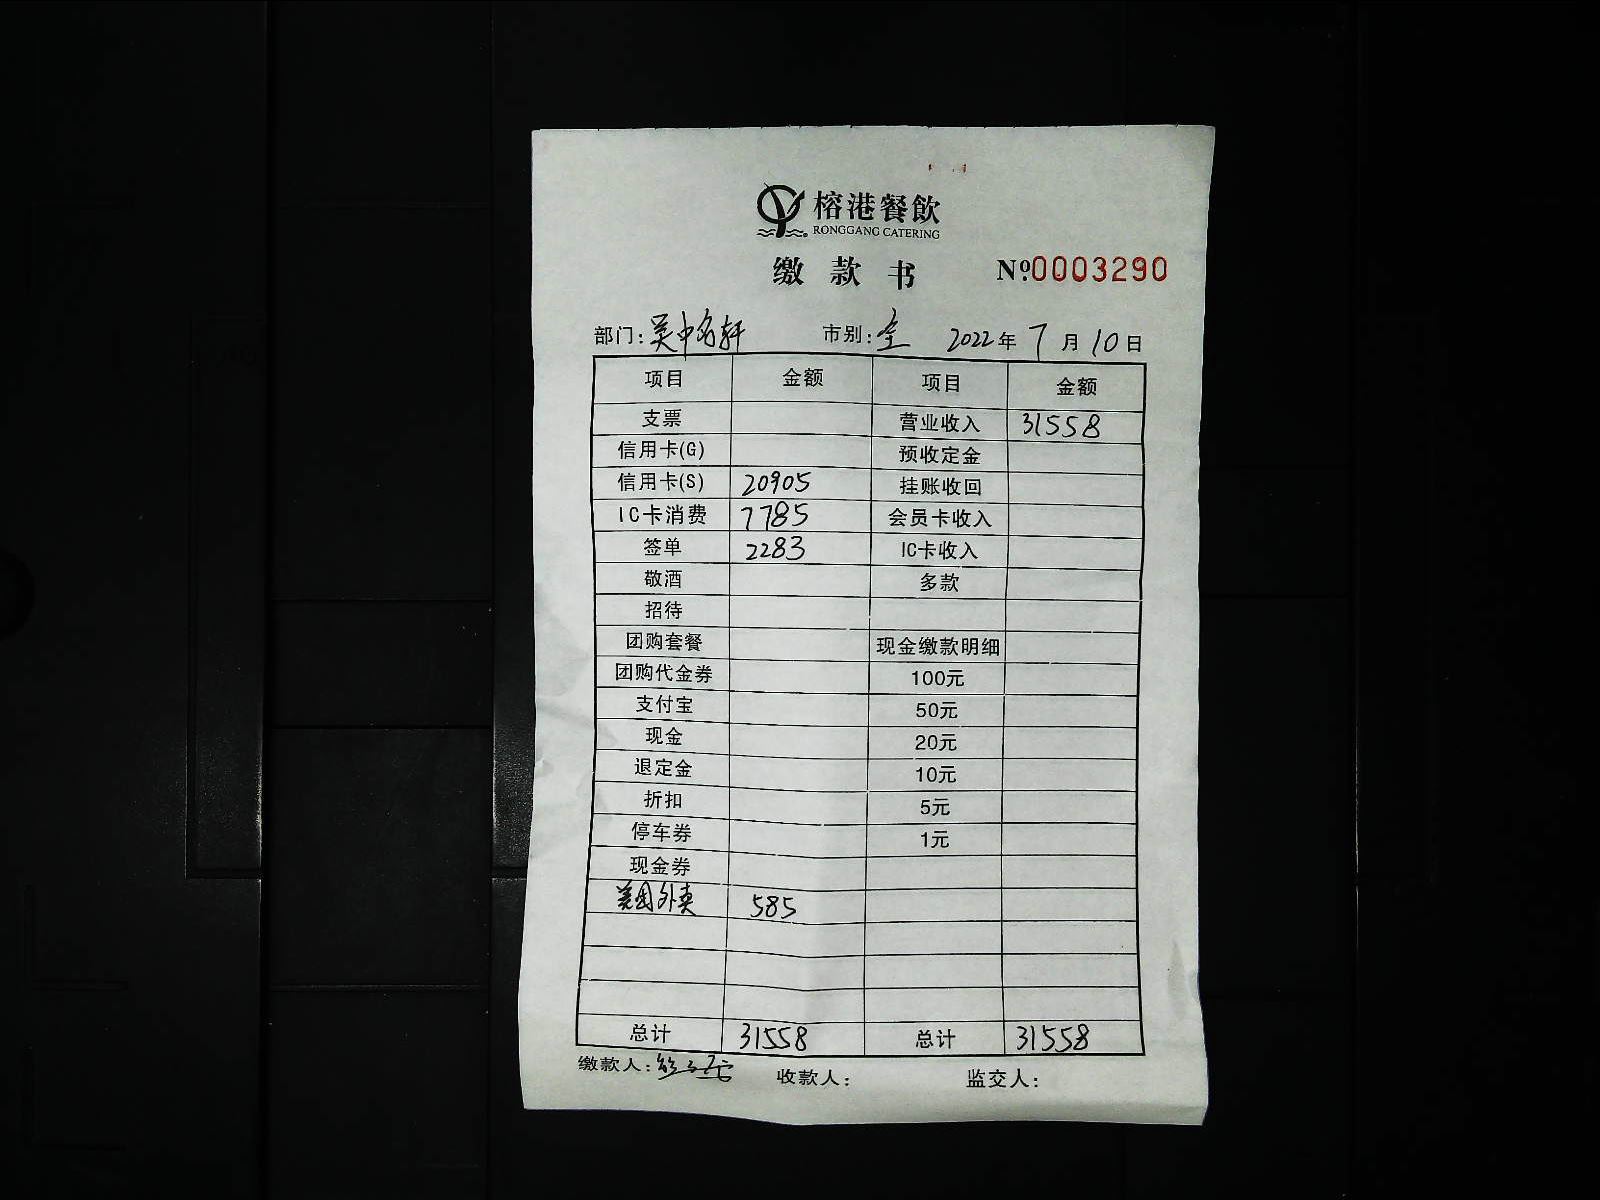 榕港餐飲
RONGGANG CATERING
缴款书 №0003290
部门:吴中名轩 市别:全 2022年7月10日
项目 金额 项目 金额
支票 营业收入 31558
信用卡(G) 预收定金
信用卡(S) 20905 挂账收回
IC卡消费 7785 会员卡收入
签单 2283 IC卡收入
敬酒 多款
招待
团购套餐 现金缴款明细
团购代金券 100元
支付宝 50元
现金 20元
退定金 10元
折扣 5元
停车券 1元
现金券
美团外卖 585
总计 31558 总计 31558
缴款人: 收款人: 监交人: